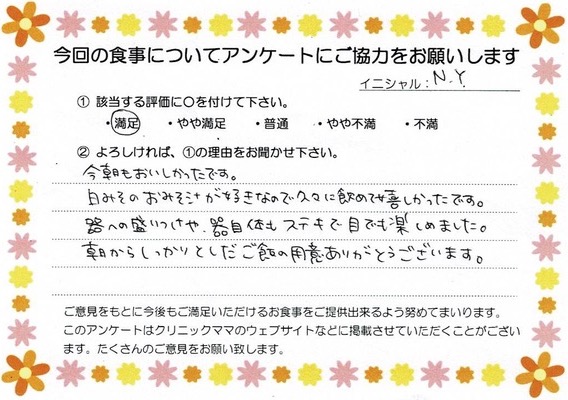 今回の食事についてアンケートにご協力をお願いします
イニシャル：N.Y.
① 該当する評価に○を付けて下さい。
・満足 ・やや満足 ・普通 ・やや不満 ・不満
② よろしければ、①の理由をお聞かせ下さい。
今朝もおいしかったです。
白みそのおみそ汁が好きなので久々に飲めて嬉しかったです。
器への盛りつけや、器自体もステキで目でも楽しめました。
朝からしっかりとしたご飯の用意ありがとうございます。
ご意見をもとに今後もご満足いただけるお食事をご提供出来るよう努めてまいります。
このアンケートはクリニックママのウェブサイトなどに掲載させていただくことがござい
ます。たくさんのご意見をお願い致します。